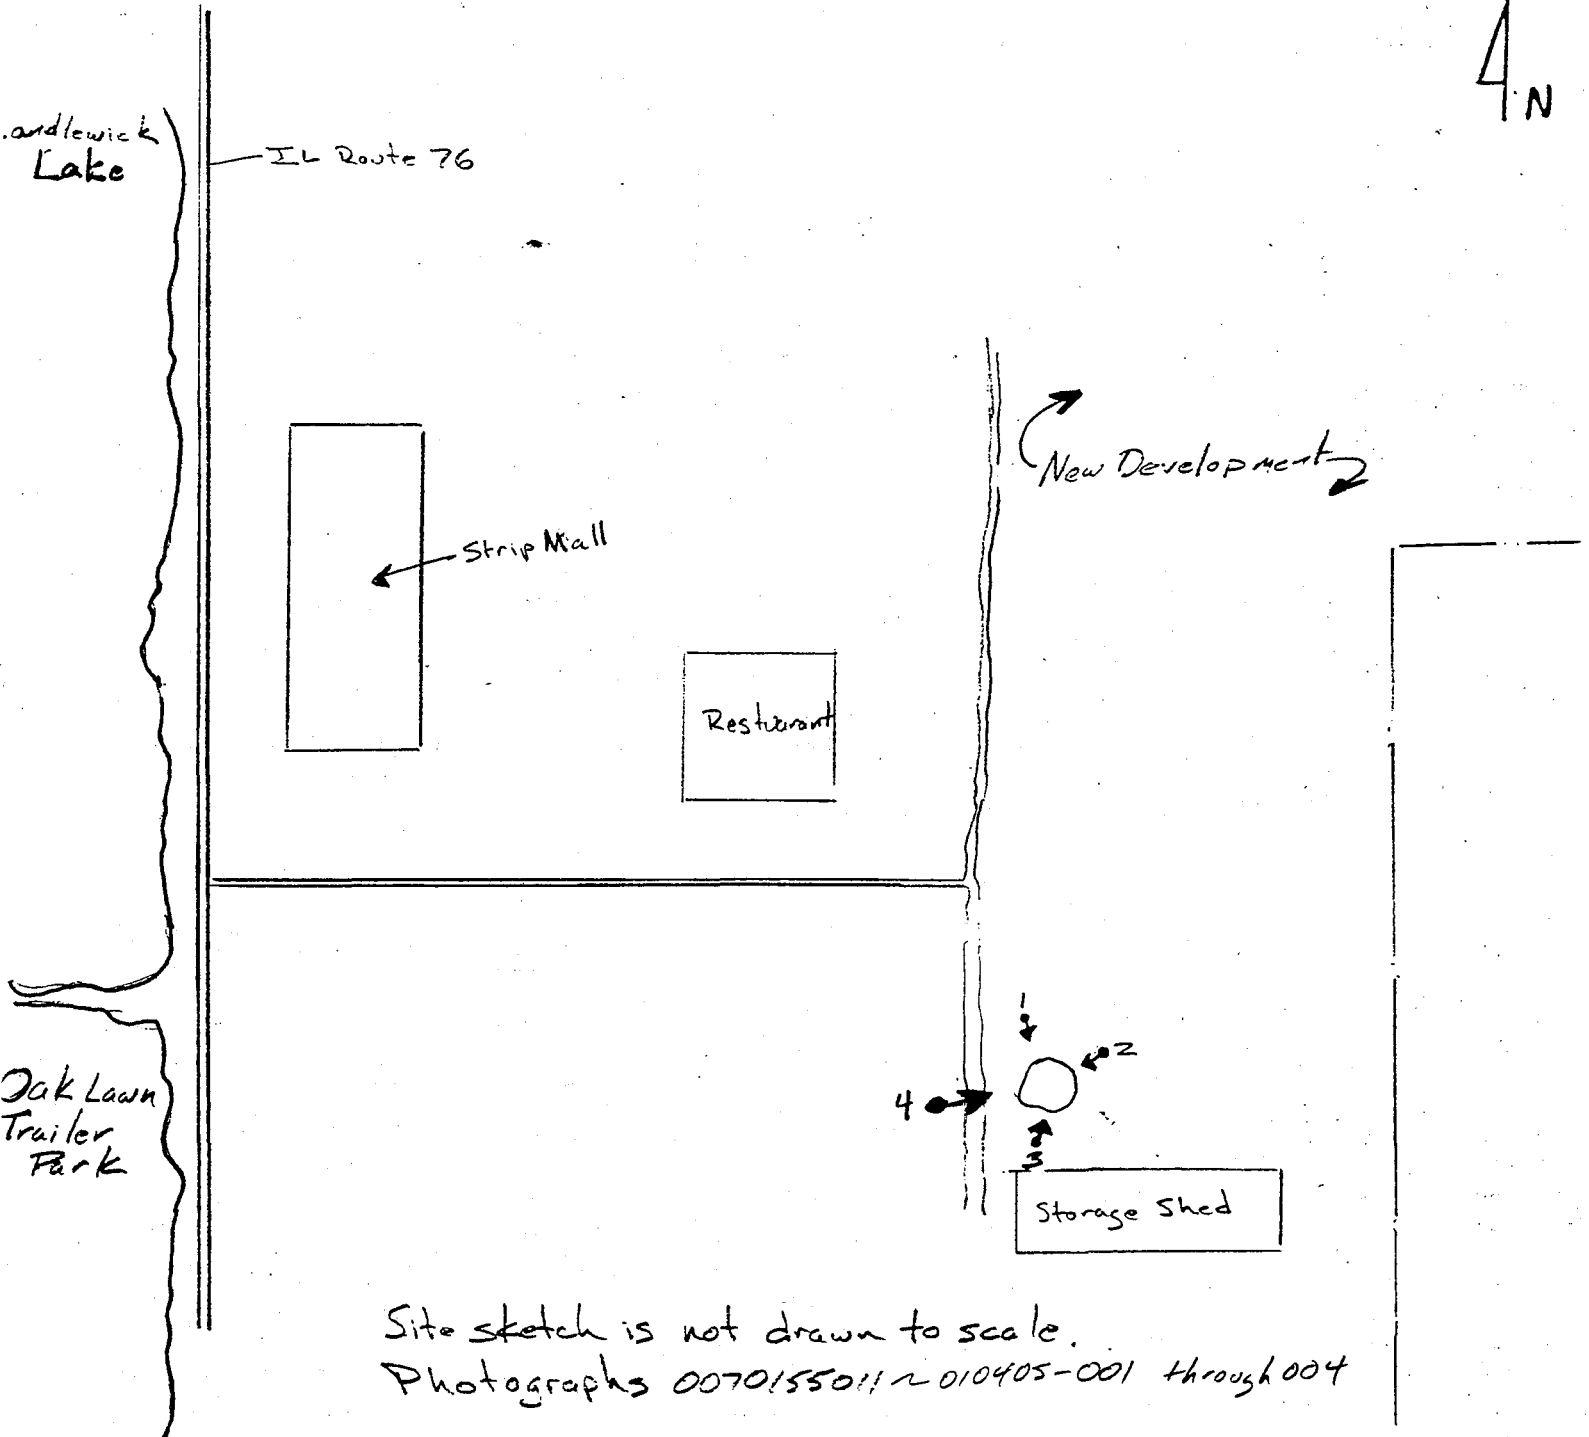 N
.andlewick
Lake
IL Route 76
New Development
Strip Mall
Restuarant
1
2
4
3
Oak Lawn
Trailer
Park
Storage Shed
Site sketch is not drawn to scale.
Photographs 0070155011~010405-001 through 004